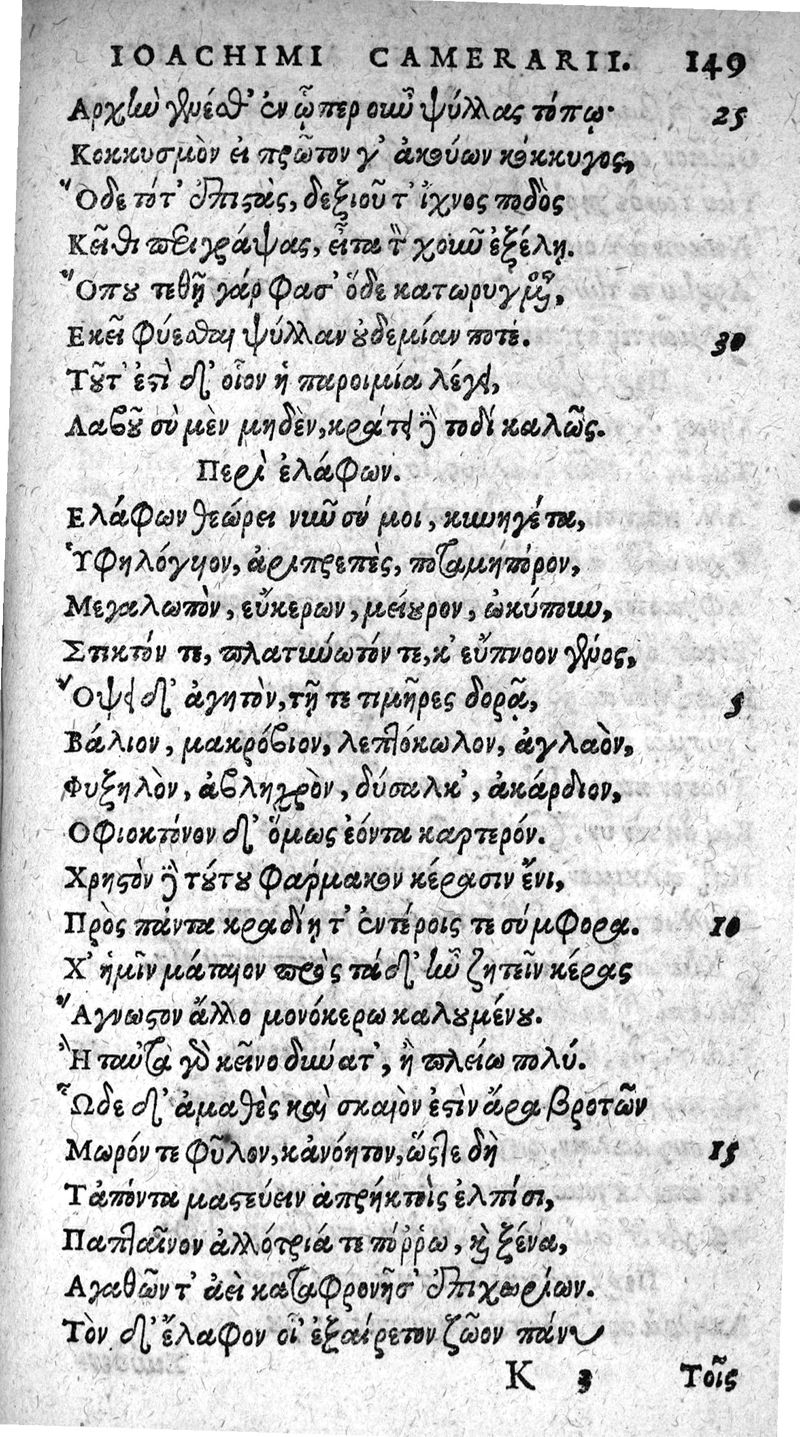 IOACHIMI CAMERARII. 149
Αρχὴν γενέσθ' ἐν ᾧπερ οκνῇ ψύλλας τόπῳ· 25
Κοκκυσμὸν εἰ πρῶτον γ' ἀκούων κόκκυγος,
Ὅδε τότ' ἐπιστὰς, δεξιοῦ τ' ἴχνος ποδὸς
Κεῖθι περιγράψας, εἶτα τὴν χοῦν ἐξέλῃ.
Ὅπου τεθῇ γάρ φασ' ὅδε κατωρυγμένος,
Εκεῖ φύεσθαι ψύλλαν οὐδεμίαν ποτέ. 30
Τοῦτ' ἐστὶ δ' οἷον ἡ παροιμία λέγει,
Λαβοῦ σὺ μὲν μηδὲν, κράτει δὲ τοδὶ καλῶς.
Περὶ ἐλάφων.
Ελάφων θεώρει νῦν σύ μοι, κυνηγέτα,
Ὑψηλόγυιον, ἀριπρεπὲς, ποταμηπόρον,
Μεγαλωπὸν, εὔκερων, μείουρον, ὠκύπουν,
Στικτόν τε, πλατυνωτόν τε, κ' εὔπνοον γένος,
Ὄψει δ' ἀγητὸν, τῇ τε τιμῆρες δορᾷ, 5
Βάλιον, μακρόβιον, λεπτόκωλον, ἀγλαὸν,
Φυξηλὸν, ἀβληχρὸν, δύσαλκ', ἀκάρδιον,
Οφιοκτόνον δ' ὅμως ἐόντα καρτερόν.
Χρηστὸν δὲ τούτου φάρμακον κέρασιν ἔνι,
Πρὸς πάντα κραδίῃ τ' ἐντέροις τε σύμφορα. 10
Χ' ἡμῖν μάταιον πρὸς τάδ' ἦν ζητεῖν κέρας
Ἄγνωστον ἄλλο μονόκερω καλουμένου.
Ἢ ταὐτὰ γὰρ κεῖνο δύνατ', ἢ πλείω πολύ.
Ὧδε δ' ἀμαθὲς καὶ σκαιὸν ἐστὶν ἄρα βροτῶν
Μωρόν τε φῦλον, κἀνόητον, ὥστε δὴ 15
Τἀπόντα μαστεύειν ἀπρήκτοις ἐλπίσι,
Παπταῖνον ἀλλότριά τε πόῤῥω, καὶ ξένα,
Αγαθῶν τ' ἀεὶ καταφρονῆσ' ἐπιχωρίων.
Τὸν δ' ἔλαφον οἷ' ἐξαίρετον ζῶον πάνυ
K 3 Τοῖς